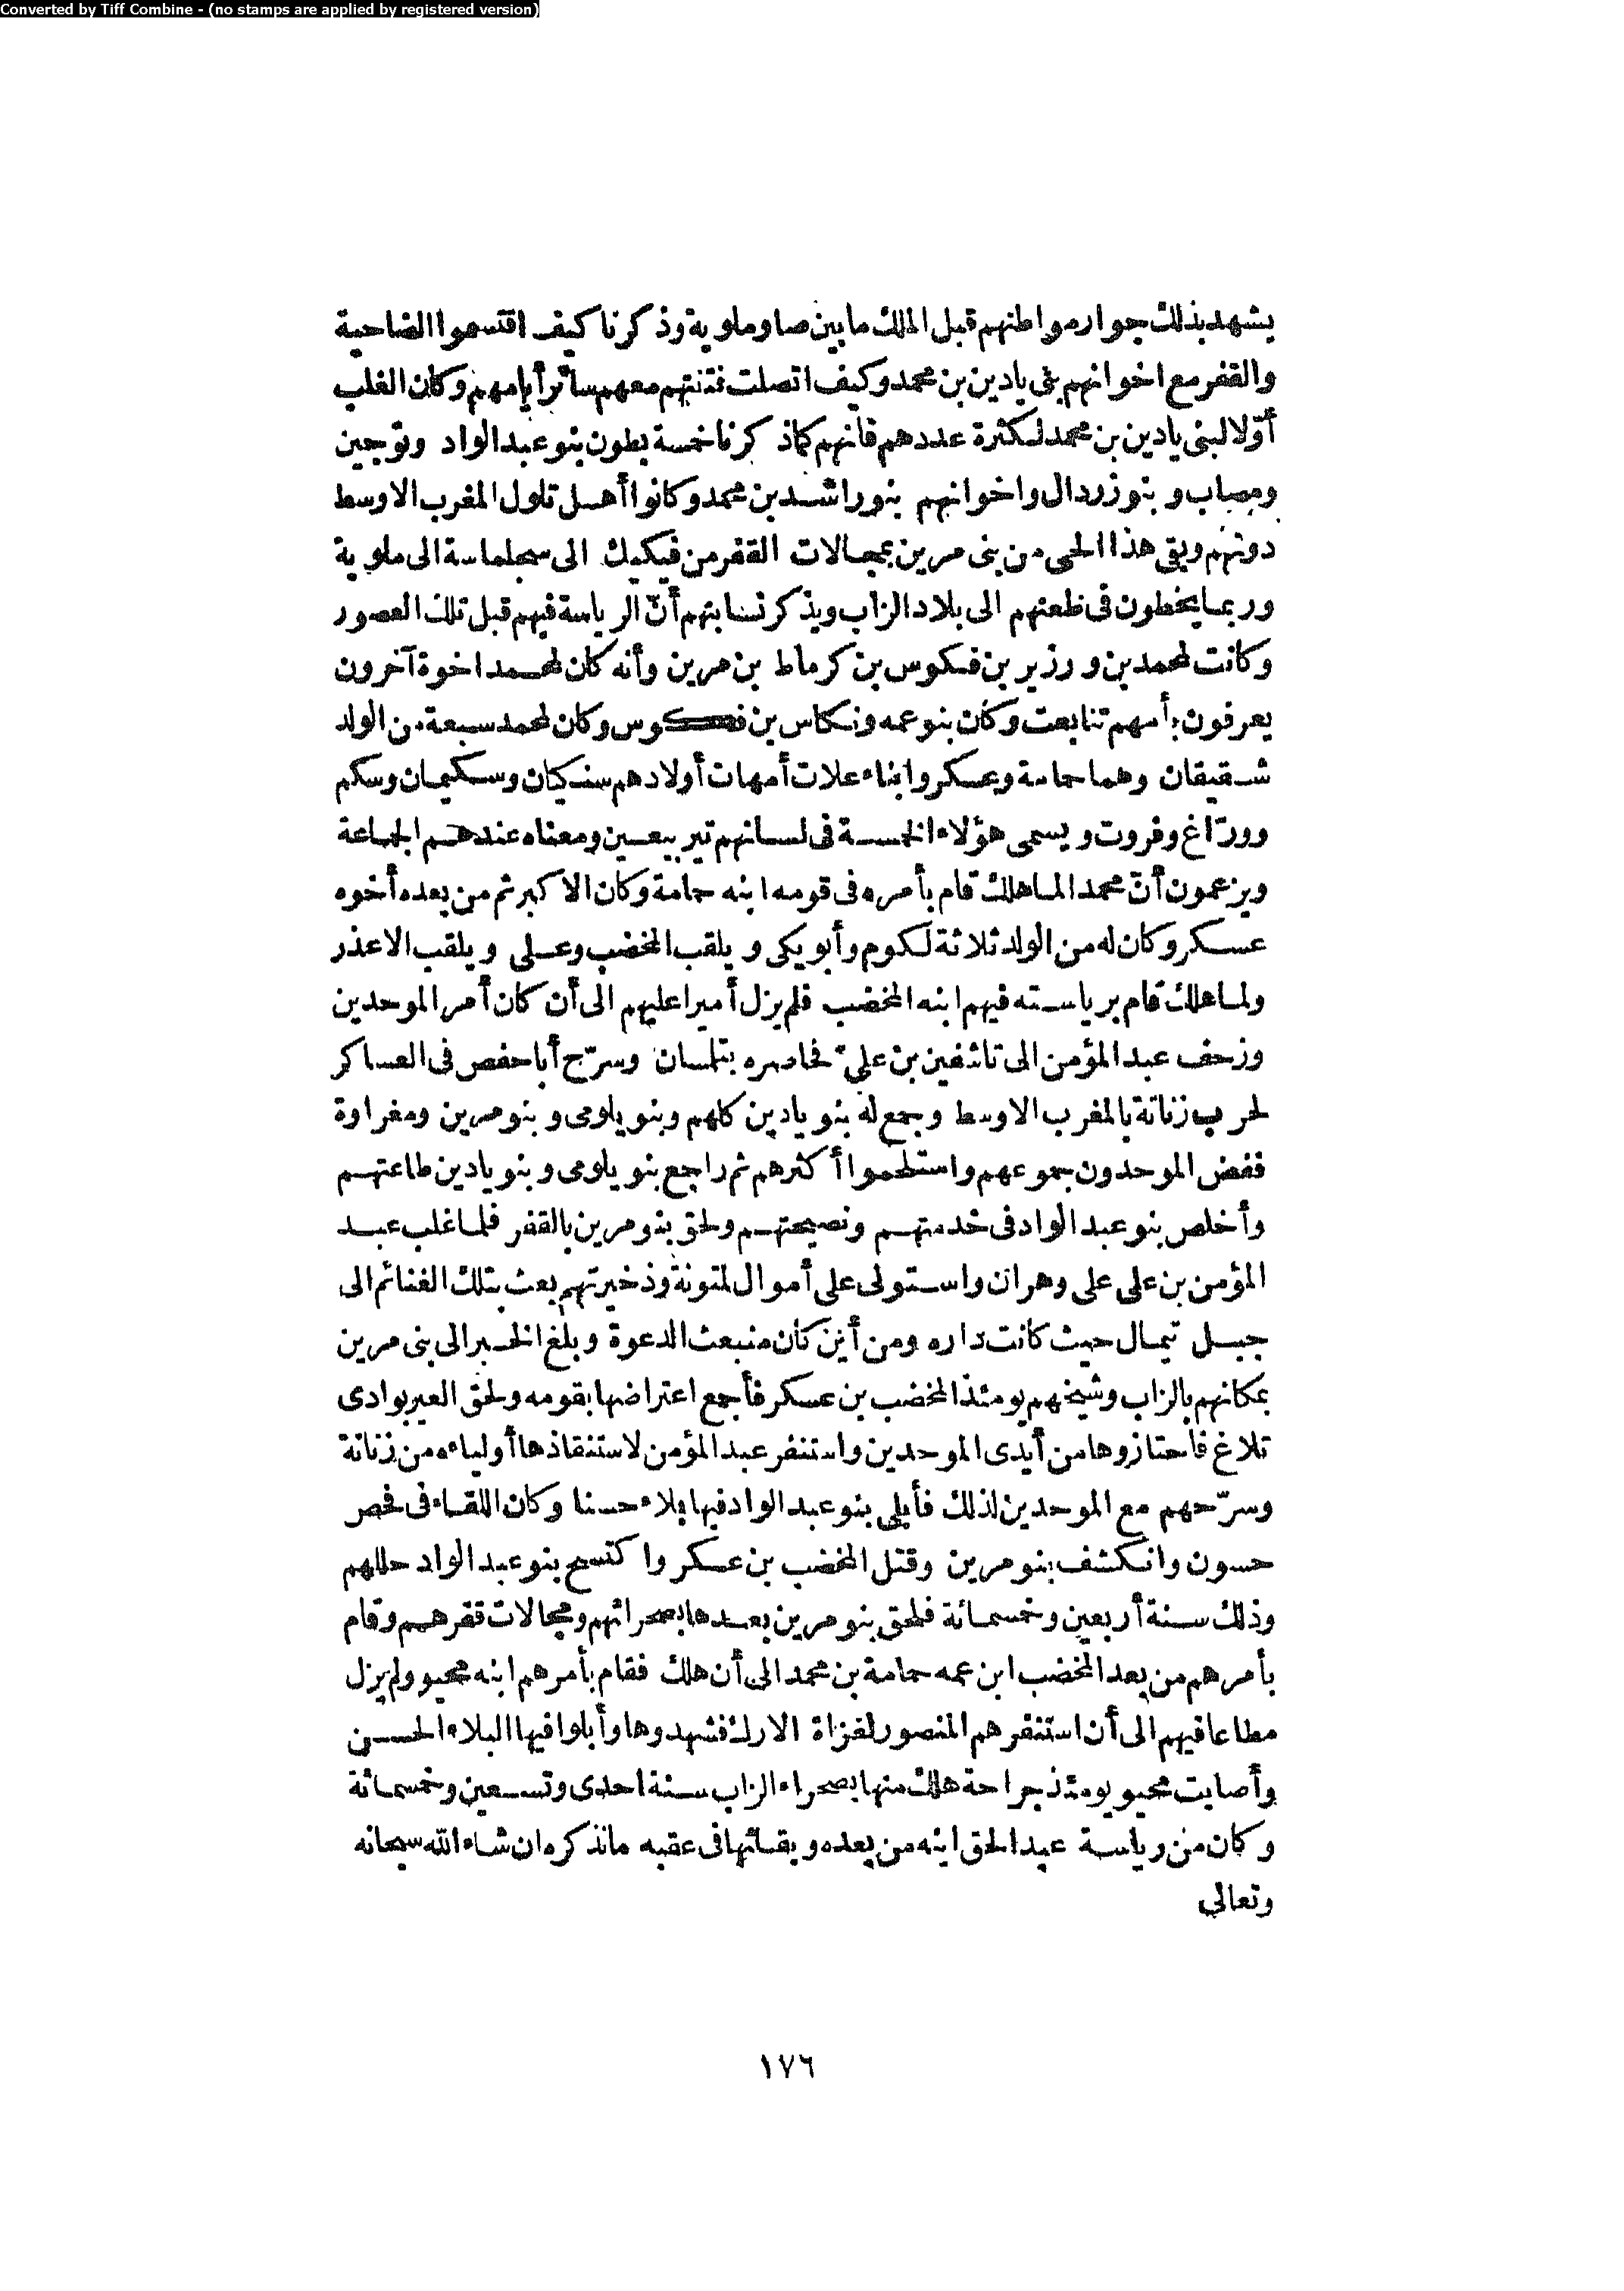 Converted by Tiff Combine - (no stamps are applied by registered version)
يشهد بذلك جوار مواطنهم قبل الملك ما بين صا وملوية وذكرنا كيف اقتسموا الضاحية
والقفر مع اخوانهم بنى يادين بن محمد وكيف اتصلت فتنتهم معهم سائر أيامهم وكان الغلب
أوّلا لبنى يادين بن محمد لكثرة عددهم فانهم كما ذكرنا خمسة بطون بنو عبد الواد وتوجين
ومصاب وبنو زردال واخوانهم بنو راشد بن محمد وكانوا أهل تلول المغرب الاوسط
دونهم وبقى هذا الحى من بنى مرين بمجالات القفر من فيكيك الى سجلماسة الى ملوية
وربما يخطون فى ظعنهم الى بلاد الزاب ويذكر نسابتهم أنّ الرياسة فيهم قبل تلك العصور
وكانت لمحمد بن ورزير بن فكوس بن كرماط بن مرين وأنه كان لمحمد اخوة آخرون
يعرفون بأمهم تنابعت وكان بنو عمه ونكاس بن فكوس وكان لمحمد سبعة من الولد
شقيقان وهما حمامة وعسكر وابناء علات أمهات أولادهم سنكيان وسكيمان وسكم
وورّاغ وفروت ويسمى هؤلاء الخمسة فى لسانهم تيريبعين ومعناه عندهم الجماعة
ويزعمون أنّ محمدا لما هلك قام بأمره فى قومه ابنه حمامة وكان الاكبر ثم من بعده أخوه
عسكر وكان له من الولد ثلاثة لكوم وأبو يكى ويلقب المخضب وعلى ويلقب الاعذر
ولما هلك قام برياسته فيهم ابنه المخضب فلم يزل أميرا عليهم الى أن كان أمر الموحدين
وزحف عبد المؤمن الى تاشفين بن علىّ فحاصره بتلمسان وسرّح أبا حفص فى العساكر
لحرب زناتة بالمغرب الاوسط وجمع له بنو يادين كلهم وبنو يلومى وبنو مرين ومغراوة
ففض الموحدون جموعهم واستلحموا أكثرهم ثم راجع بنو يلومى وبنو يادين طاعتهم
وأخلص بنو عبد الواد فى خدمتهم ونصيحتهم ولحق بنو مرين بالقفر فلما غلب عبد
المؤمن بن على على وهران واستولى على أموال لمتونة وذخيرتهم بعث بتلك الغنائم الى
جبل تيمال حيث كانت داره ومن أين كان منبعث الدعوة وبلغ الخبر الى بنى مرين
بمكانهم بالزاب وشيخهم يومئذ المخضب بن عسكر فأجمع اعتراضها بقومه ولحق العير بوادى
تلاغ فاحتازوها من أيدى الموحدين واستنفر عبد المؤمن لاستنقاذها أولياءه من زناتة
وسرّحهم مع الموحدين لذلك فأبلى بنو عبد الواد فيها بلاء حسنا وكان اللقاء فى فحص
حسون وانكشف بنو مرين وقتل المخضب بن عسكر واكتسح بنو عبد الواد حللهم
وذلك سنة أربعين وخمسمائة فلحق بنو مرين بعدها بصحرائهم ومجالات قفرهم وقام
بأمرهم من بعد المخضب ابن عمه حمامة بن محمد الى أن هلك فقام بأمرهم ابنه محيو ولم يزل
مطاعا فيهم الى أن استنفرهم المنصور لغزاة الارك فشهدوها وأبلوا فيها البلاء الحسن
وأصابت محيو يومئذ جراحة هلك منها بصحراء الزاب سنة احدى وتسعين وخمسمائة
وكان من رياسة عبد الحق ابنه من بعده وبقائها فى عقبه ما نذكره ان شاء الله سبحانه
وتعالى
١٧٦